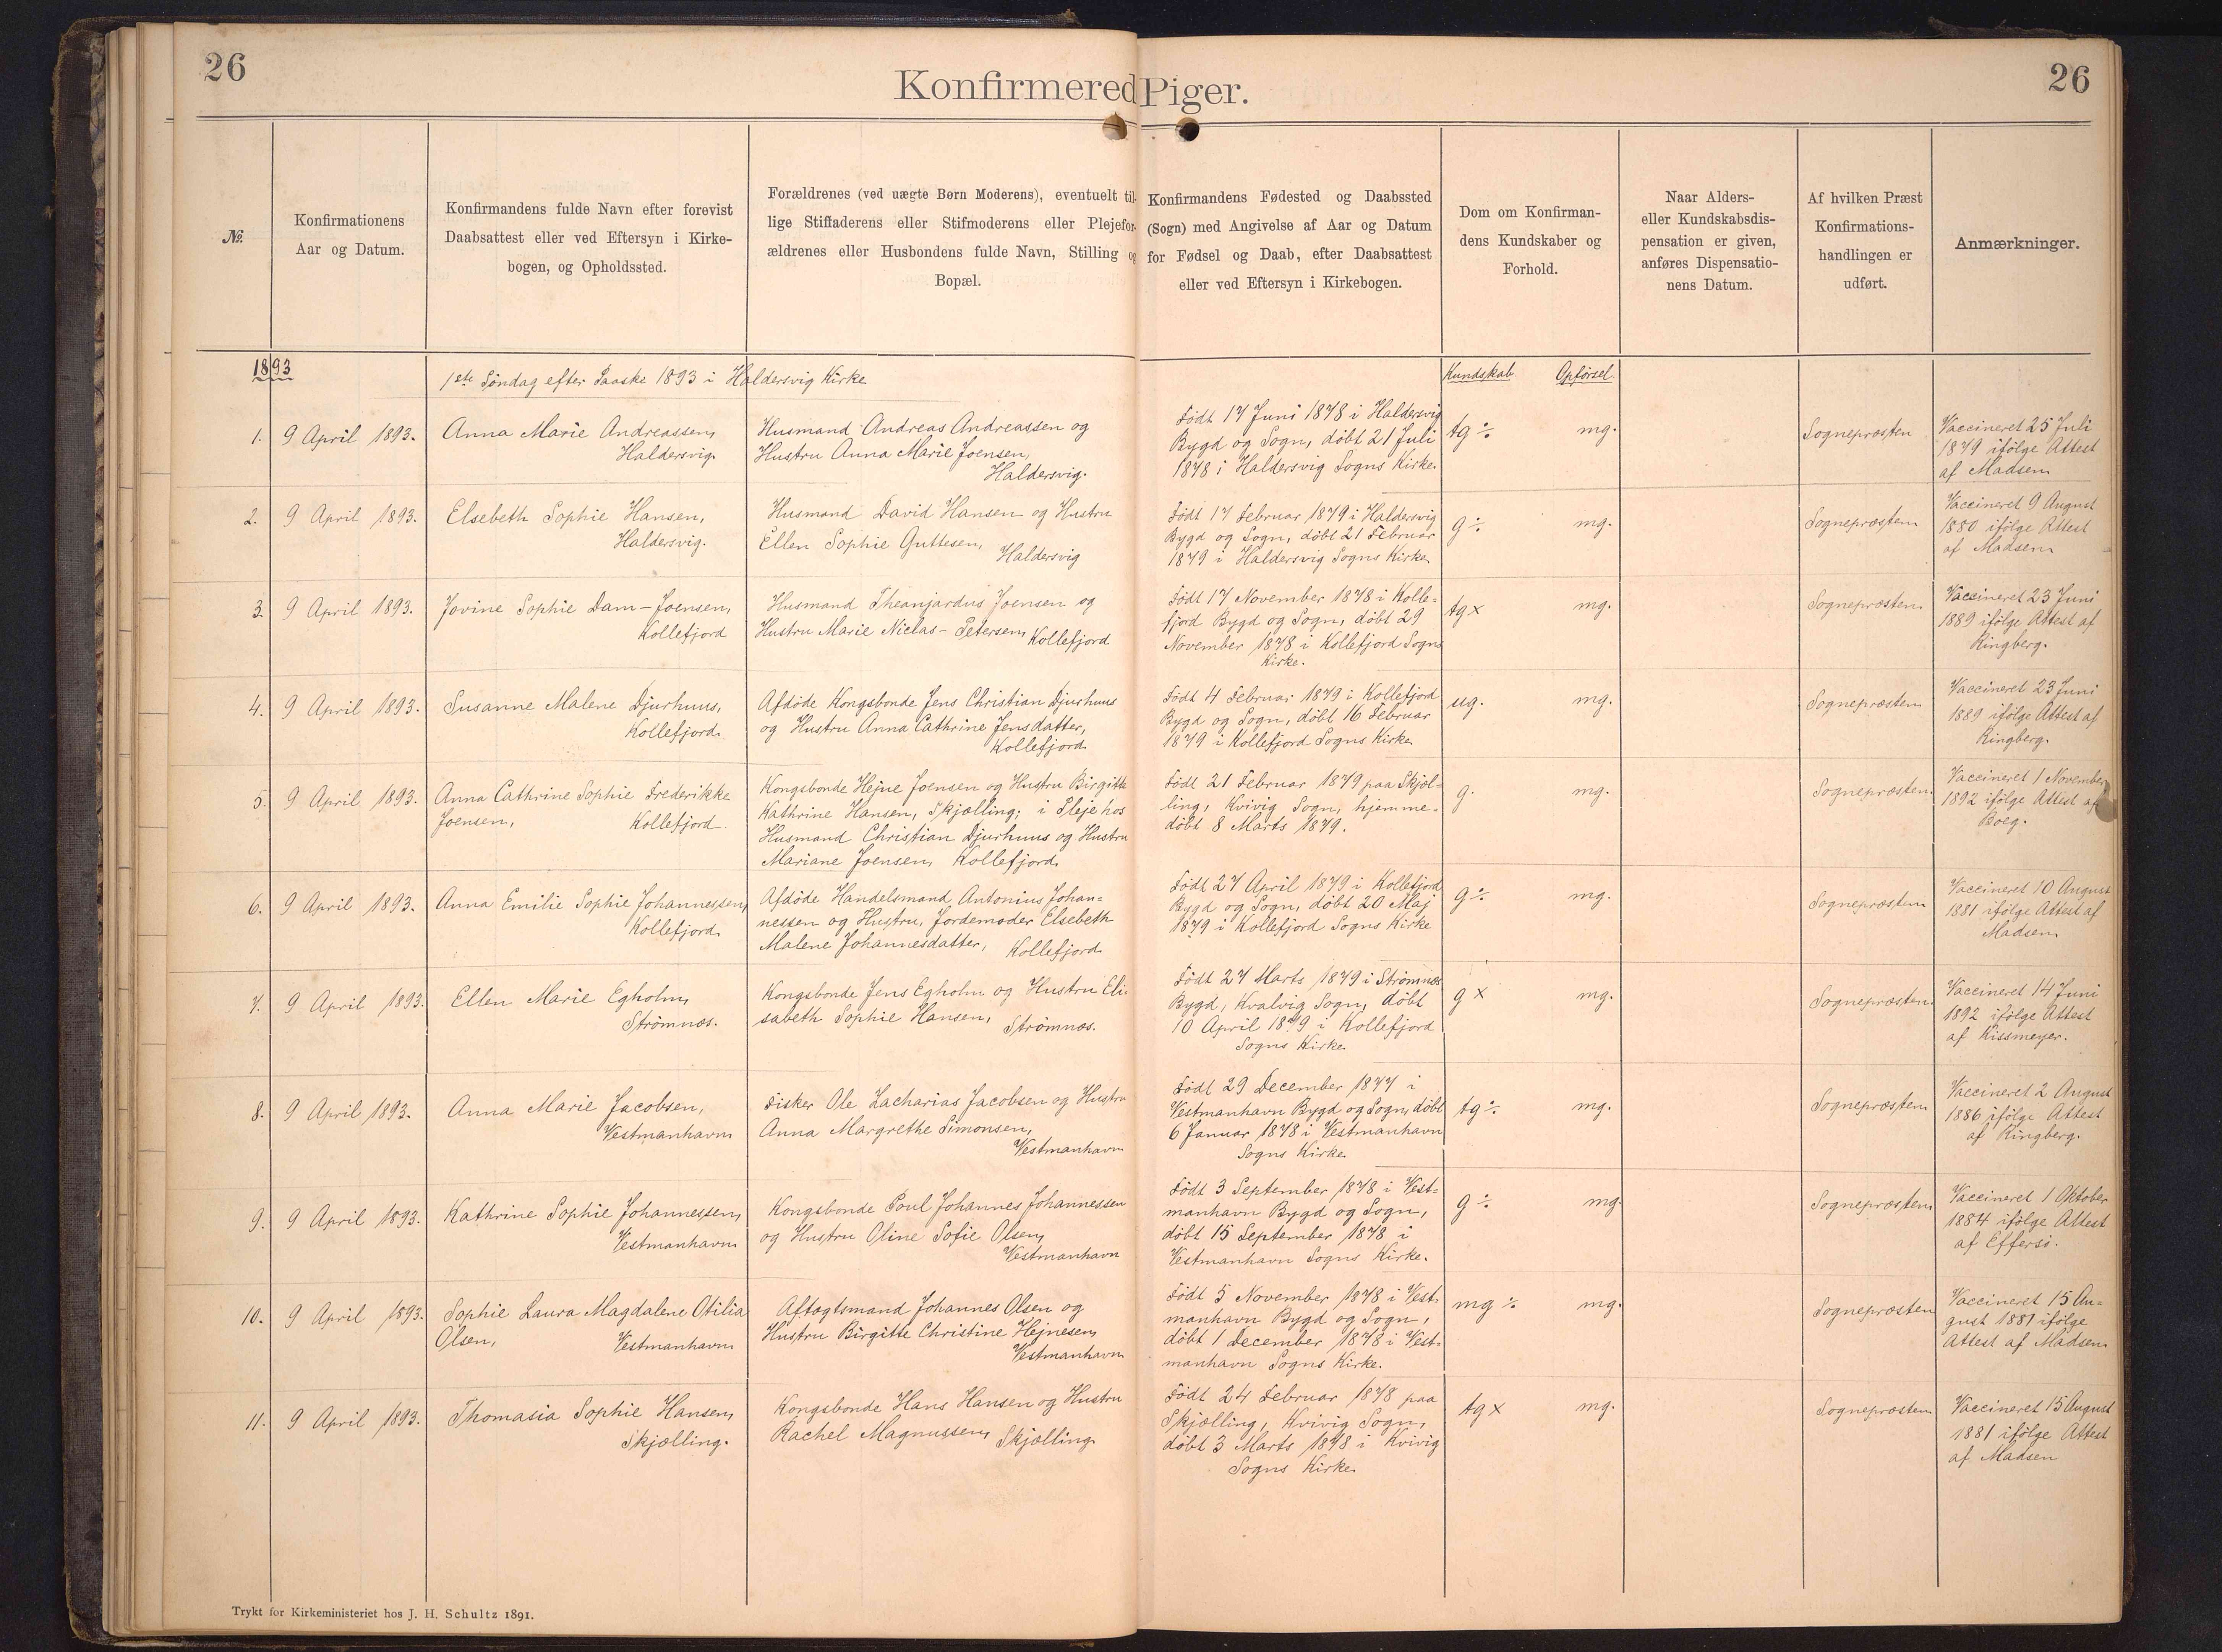 26
Konfirmered Piger.
26
№.
Konfirmationens
Aar og Datum.
Konfirmandens fulde Navn efter forevist
Daabsattest eller ved Eftersyn i Kirke-
bogen, og Opholdssted.
Forældrenes (ved uægte Børn Moderens), eventuelt til-
lige Stiffaderens eller Stifmoderens eller Plejefor-
ældrenes eller Husbondens fulde Navn, Stilling og
Bopæl.
Konfirmandens Fødested og Daabssted
(Sogn) med Angivelse af Aar og Datum
for Fødsel og Daab, efter Daabsattest
eller ved Eftersyn i Kirkebogen.
Dom om Konfirman-
dens Kundskaber og
Forhold.
Naar Alders-
eller Kundskabsdis-
pensation er given,
anføres Dispensatio-
nens Datum.
Af hvilken Præst
Konfirmations-
handlingen er
udført.
Anmærkninger.
1893
1ste Söndag efter Paaske 1893 i Haldersvig Kirke
Kundskab Opförsel.
1. 9 April 1893.
Anna Marie Andreassen,
Haldersvig.
Husmand Andreas Andreassen og
Hustru Anna Marie Joensen,
Haldersvig.
Födt 17 Juni 1878 i Haldersvig
Bygd og Sogn, döbt 21 Juli
1878 i Haldersvig Sogns Kirke.
tg ÷ mg.
Sognepræsten
Vaccineret 25 Juli
1879 ifölge Attest
af Madsen
2. 9 April 1893.
Elsebeth Sophie Hansen,
Haldersvig.
Husmand David Hansen og Hustru
Ellen Sophie Guttesen,
Haldersvig
Födt 17 Februar 1879 i Haldersvig
Bygd og Sogn, döbt 21 Februar
1879 i Haldersvig Sogns Kirke.
g ÷ mg.
Sognepræsten
Vaccineret 9 August
1880 ifölge Attest
af Madsen
3. 9 April 1893.
Jovine Sophie Dam-Joensen,
Kollefjord
Husmand Theanjardus Joensen og
Hustru Marie Niclas-Petersen,
Kollefjord
Födt 17 November 1878 i Kolle=
fjord Bygd og Sogn, döbt 29
November 1878 i Kollefjord Sogns
Kirke.
tg x mg.
Sognepræsten
Vaccineret 23 Juni
1889 ifölge Attest af
Ringberg.
4. 9 April 1893.
Susanne Malene Djurhuus,
Kollefjord.
Afdöde Kongsbonde Jens Christian Djurhuus
og Hustru Anna Cathrine Jensdatter,
Kollefjord
Födt 4 Februar 1879 i Kollefjord
Bygd og Sogn, döbt 16 Februar
1879 i Kollefjord Sogns Kirke.
ug. mg.
Sognepræsten
Vaccineret 23 Juni
1889 ifölge Attest af
Ringberg.
5. 9 April 1893.
Anna Cathrine Sophie Frederikke
Joensen, Kollefjord.
Kongsbonde Hejne Joensen og Hustru Birgitte
Kathrine Hansen, Skjælling; i Pleje hos
Husmand Christian Djurhuus og Hustru
Mariane Joensen, Kollefjord.
Födt 21 Februar 1879 paa Skjæl=
ling, Kvivig Sogn, hjemme=
döbt 8 Marts 1879.
g. mg.
Sognepræsten.
Vaccineret 1 November
1892 ifölge Attest af
Boeg.
6. 9 April 1893.
Anna Emilie Sophie Johannessen,
Kollefjord.
Afdöde Handelsmand Antonius Johan=
nessen og Hustru, Jordemoder Elsebeth
Malene Johannesdatter, Kollefjord.
Födt 27 April 1879 i Kollefjord
Bygd og Sogn, döbt 20 Maj
1879 i Kollefjord Sogns Kirke
g ÷ mg.
Sognepræsten
Vaccineret 10 August
1881 ifölge Attest af
Madsen.
7. 9 April 1893.
Ellen Marie Egholm,
Strömnæs.
Kongsbonde Jens Egholm og Hustru Eli=
sabeth Sophie Hansen,
Strömnæs.
Födt 27 Marts 1879 i Strömnæs
Bygd, Kvalvig Sogn, döbt
10 April 1879 i Kollefjord
Sogns Kirke.
g x mg.
Sognepræsten.
Vaccineret 14 Juni
1892 ifölge Attest
af Kissmeyer.
8. 9 April 1893.
Anna Marie Jacobsen,
Vestmanhavn
Fisker Ole Zacharias Jacobsen og Hustru
Anna Margrethe Simonsen,
Vestmanhavn
Födt 29 December 1877 i
Vestmanhavn Bygd og Sogn, döbt
6 Januar 1878 i Vestmanhavn
Sogns Kirke.
tg ÷ mg.
Sognepræsten
Vaccineret 2 August
1886 ifölge Attest
af Ringberg.
9. 9 April 1893.
Kathrine Sophie Johannessen,
Vestmanhavn
Kongsbonde Poul Johannes Johannessen
og Hustru Oline Sofie Olsen,
Vestmanhavn
Födt 3 September 1878 i Vest=
manhavn Bygd og Sogn,
döbt 15 September 1878 i
Vestmanhavn Sogns Kirke.
g ÷ mg.
Sognepræsten
Vaccineret 1 Oktober
1884 ifölge Attest
af Effersö.
10. 9 April 1893.
Sophie Laura Magdalene Otilia
Olsen, Vestmanhavn
Aftægtsmand Johannes Olsen og
Hustru Birgitte Christine Hejnesen,
Vestmanhavn
Födt 5 November 1878 i Vest=
manhavn Bygd og Sogn,
döbt 1 December 1878 i Vest=
manhavn Sogns Kirke.
mg ÷ mg.
Sognepræsten
Vaccineret 15 Au=
gust 1881 ifölge
Attest af Madsen.
11. 9 April 1893.
Thomasia Sophie Hansen,
Skjælling.
Kongsbonde Hans Hansen og Hustru
Rachel Magnussen, Skjælling.
Födt 24 Februar 1878 paa
Skjælling, Kvivig Sogn,
döbt 3 Marts 1878 i Kvivig
Sogns Kirke.
tg x mg.
Sognepræsten
Vaccineret 15 August
1881 ifölge Attest
af Madsen
Trykt for Kirkeministeriet hos J. H. Schultz 1891.